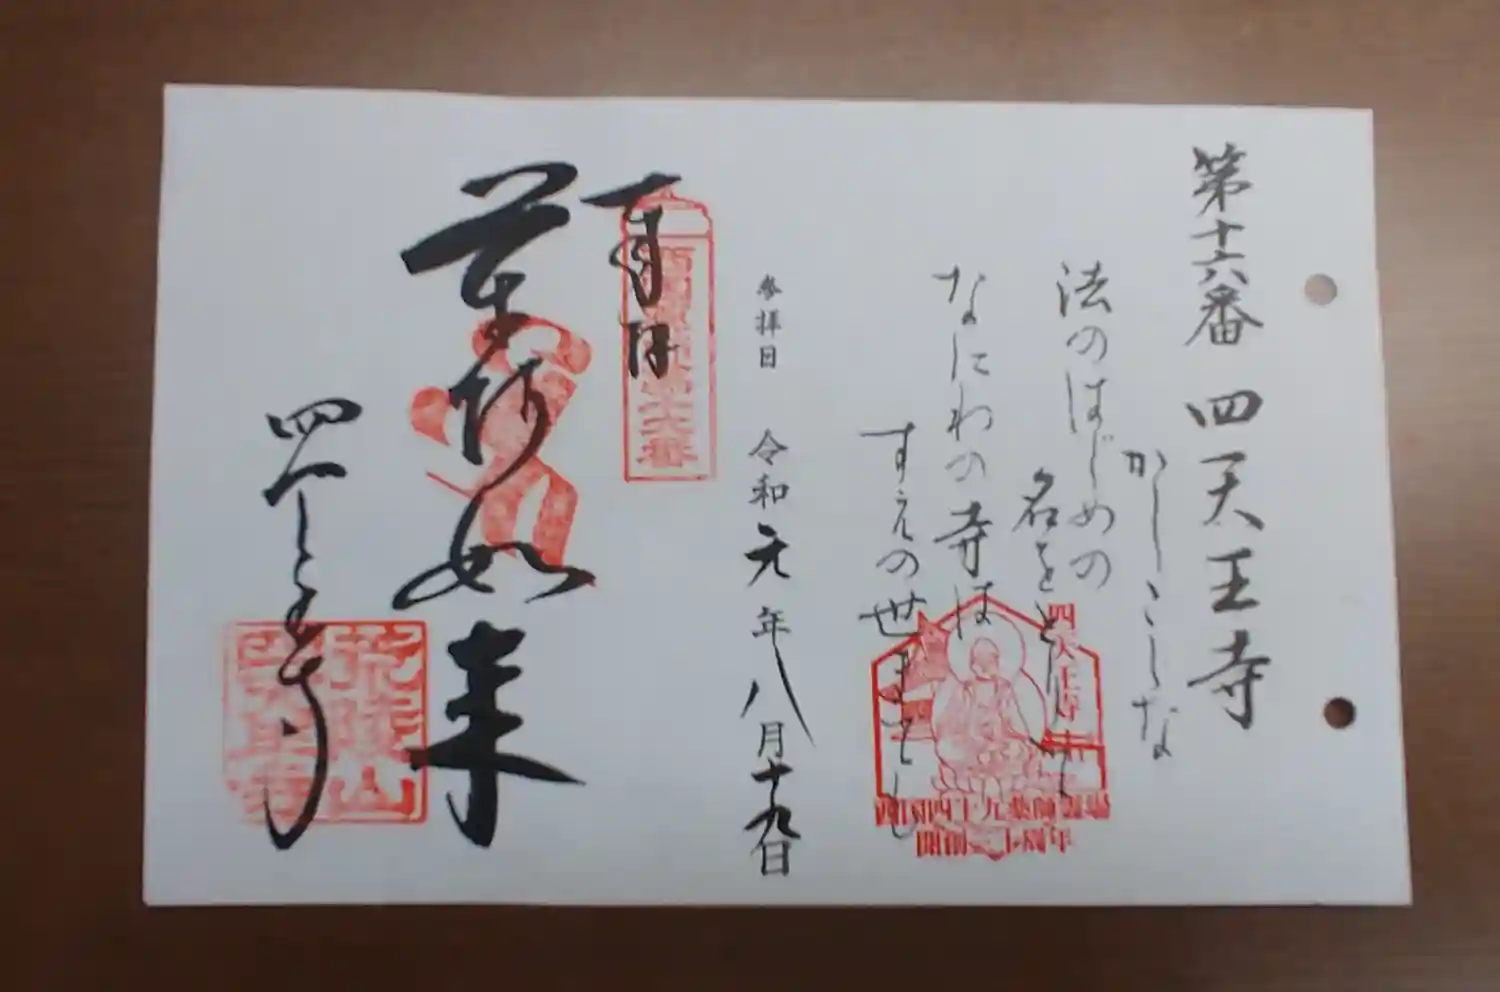 第十六番 四天王寺
かしこしな
法のはじめの
名をと
なにわの寺は
すえの世ま
四天王寺
西国四十九薬師霊場
開創三十周年
参拝日 令和元年八月十九日
奉拝
第十六番
薬師如来
四天王寺
荒陵山
四天王寺